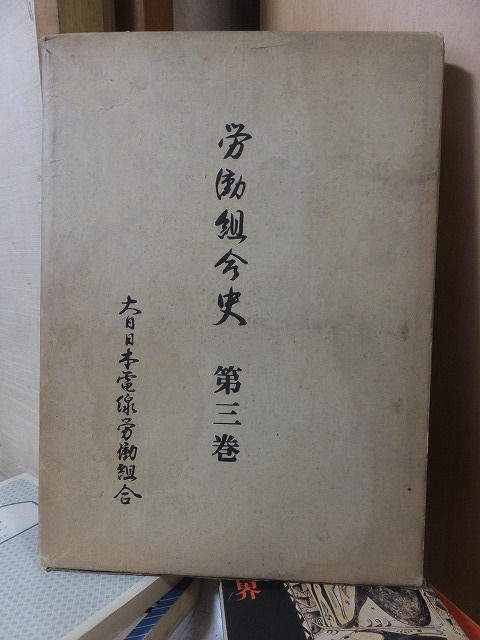 労働組合史 第三巻
大日日本電線労働組合
界